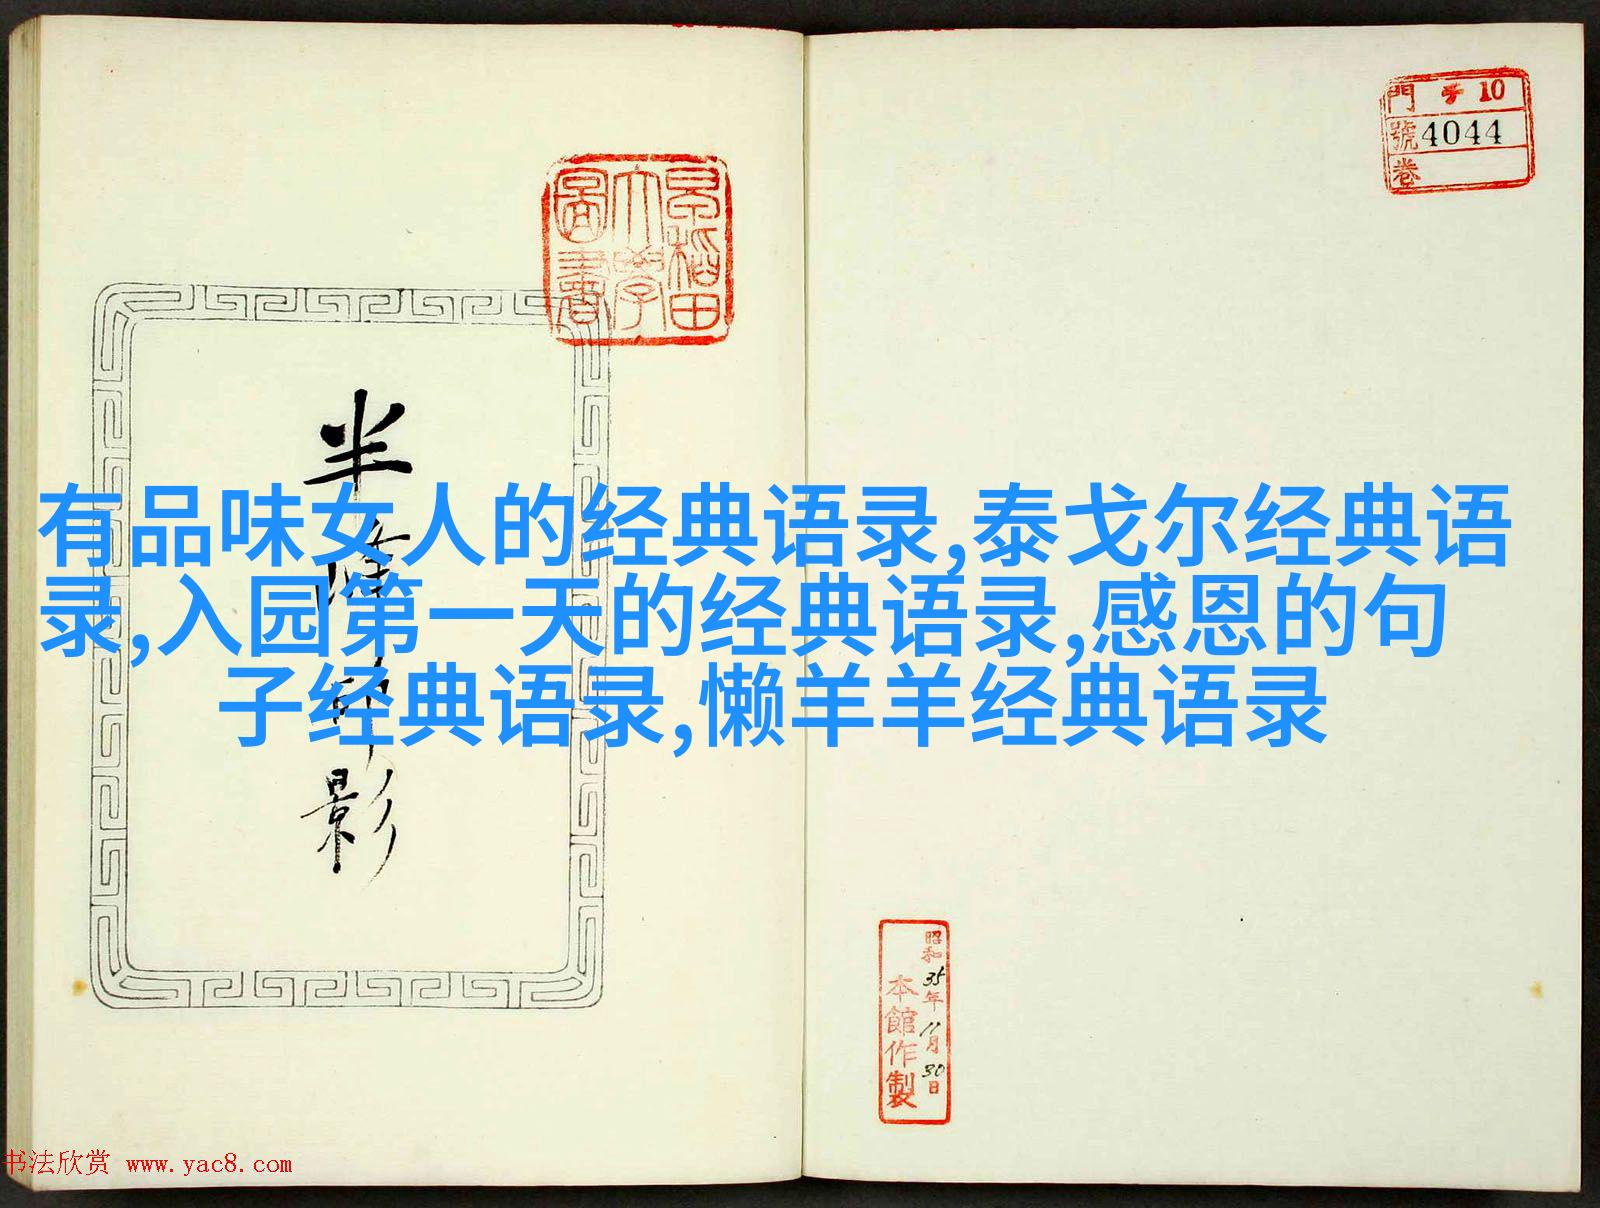 門 10
號 4044
卷
早稻田
大學
圖書
有品味女人的经典语录,泰戈尔经典语
录,入园第一天的经典语录,感恩的句
子经典语录,懒羊羊经典语录
半
印
影
昭和35年11月30日
本館作製
书法欣赏 www.yac8.com